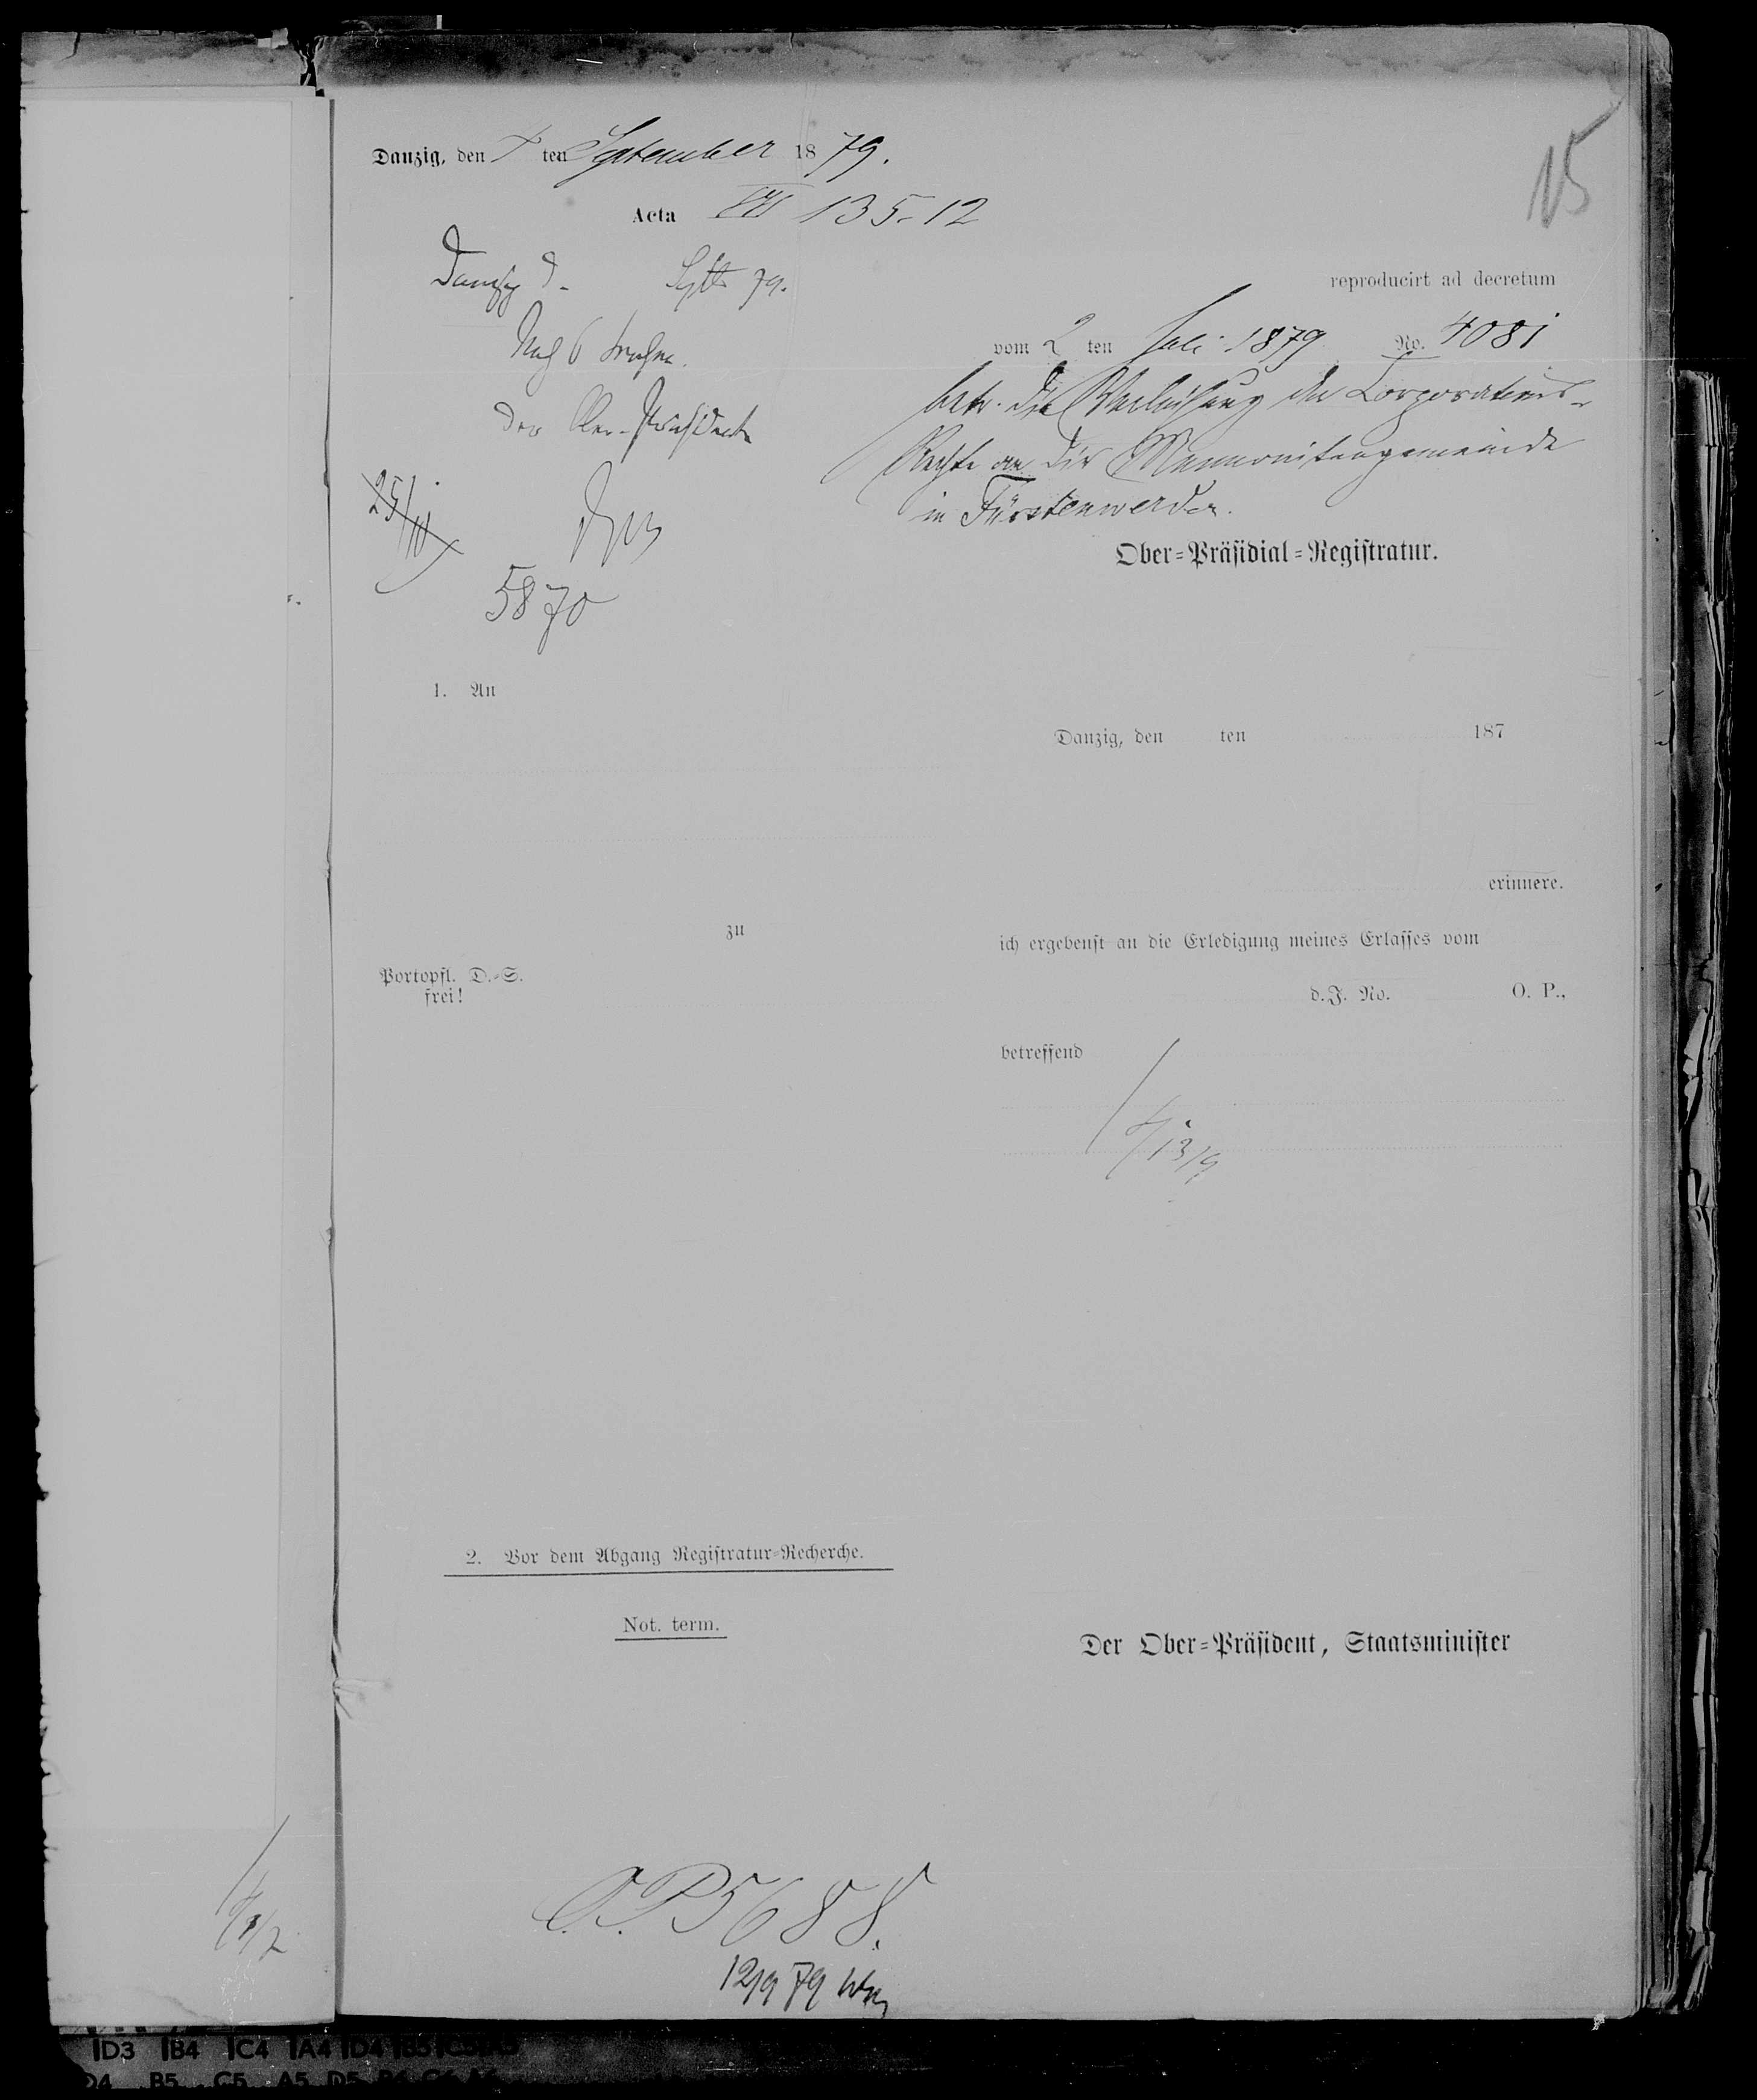 15
Danzig, den ten September 18 79.
Acta VII 135.12
Danzig d. Sept 79.
reproducirt ad decretum
Nach 6 Wochen.
vom 2 ten Juli 1879 No. 4081
betr. die Verleihung der Corporations-
Der Ober-Präsident
Rechte an die Mennonitengemeinde
in Fürstenwerder.
25/10
Ober-Präsidial-Registratur.
5870
1. An
Danzig, den ten 187
erinnere.
zu
ich ergebenst an die Erledigung meines Erlasses vom
Portopfl. D.-S.
frei!
d. J. No. O. P.,
betreffend
13/9
2. Vor dem Abgang Registratur-Recherche.
Not. term.
Der Ober-Präsident, Staatsminister
O.P. 5688.
12/9 79
D3 B4 C4 A4 D4 B5
D4 B5 C5 A5 D5